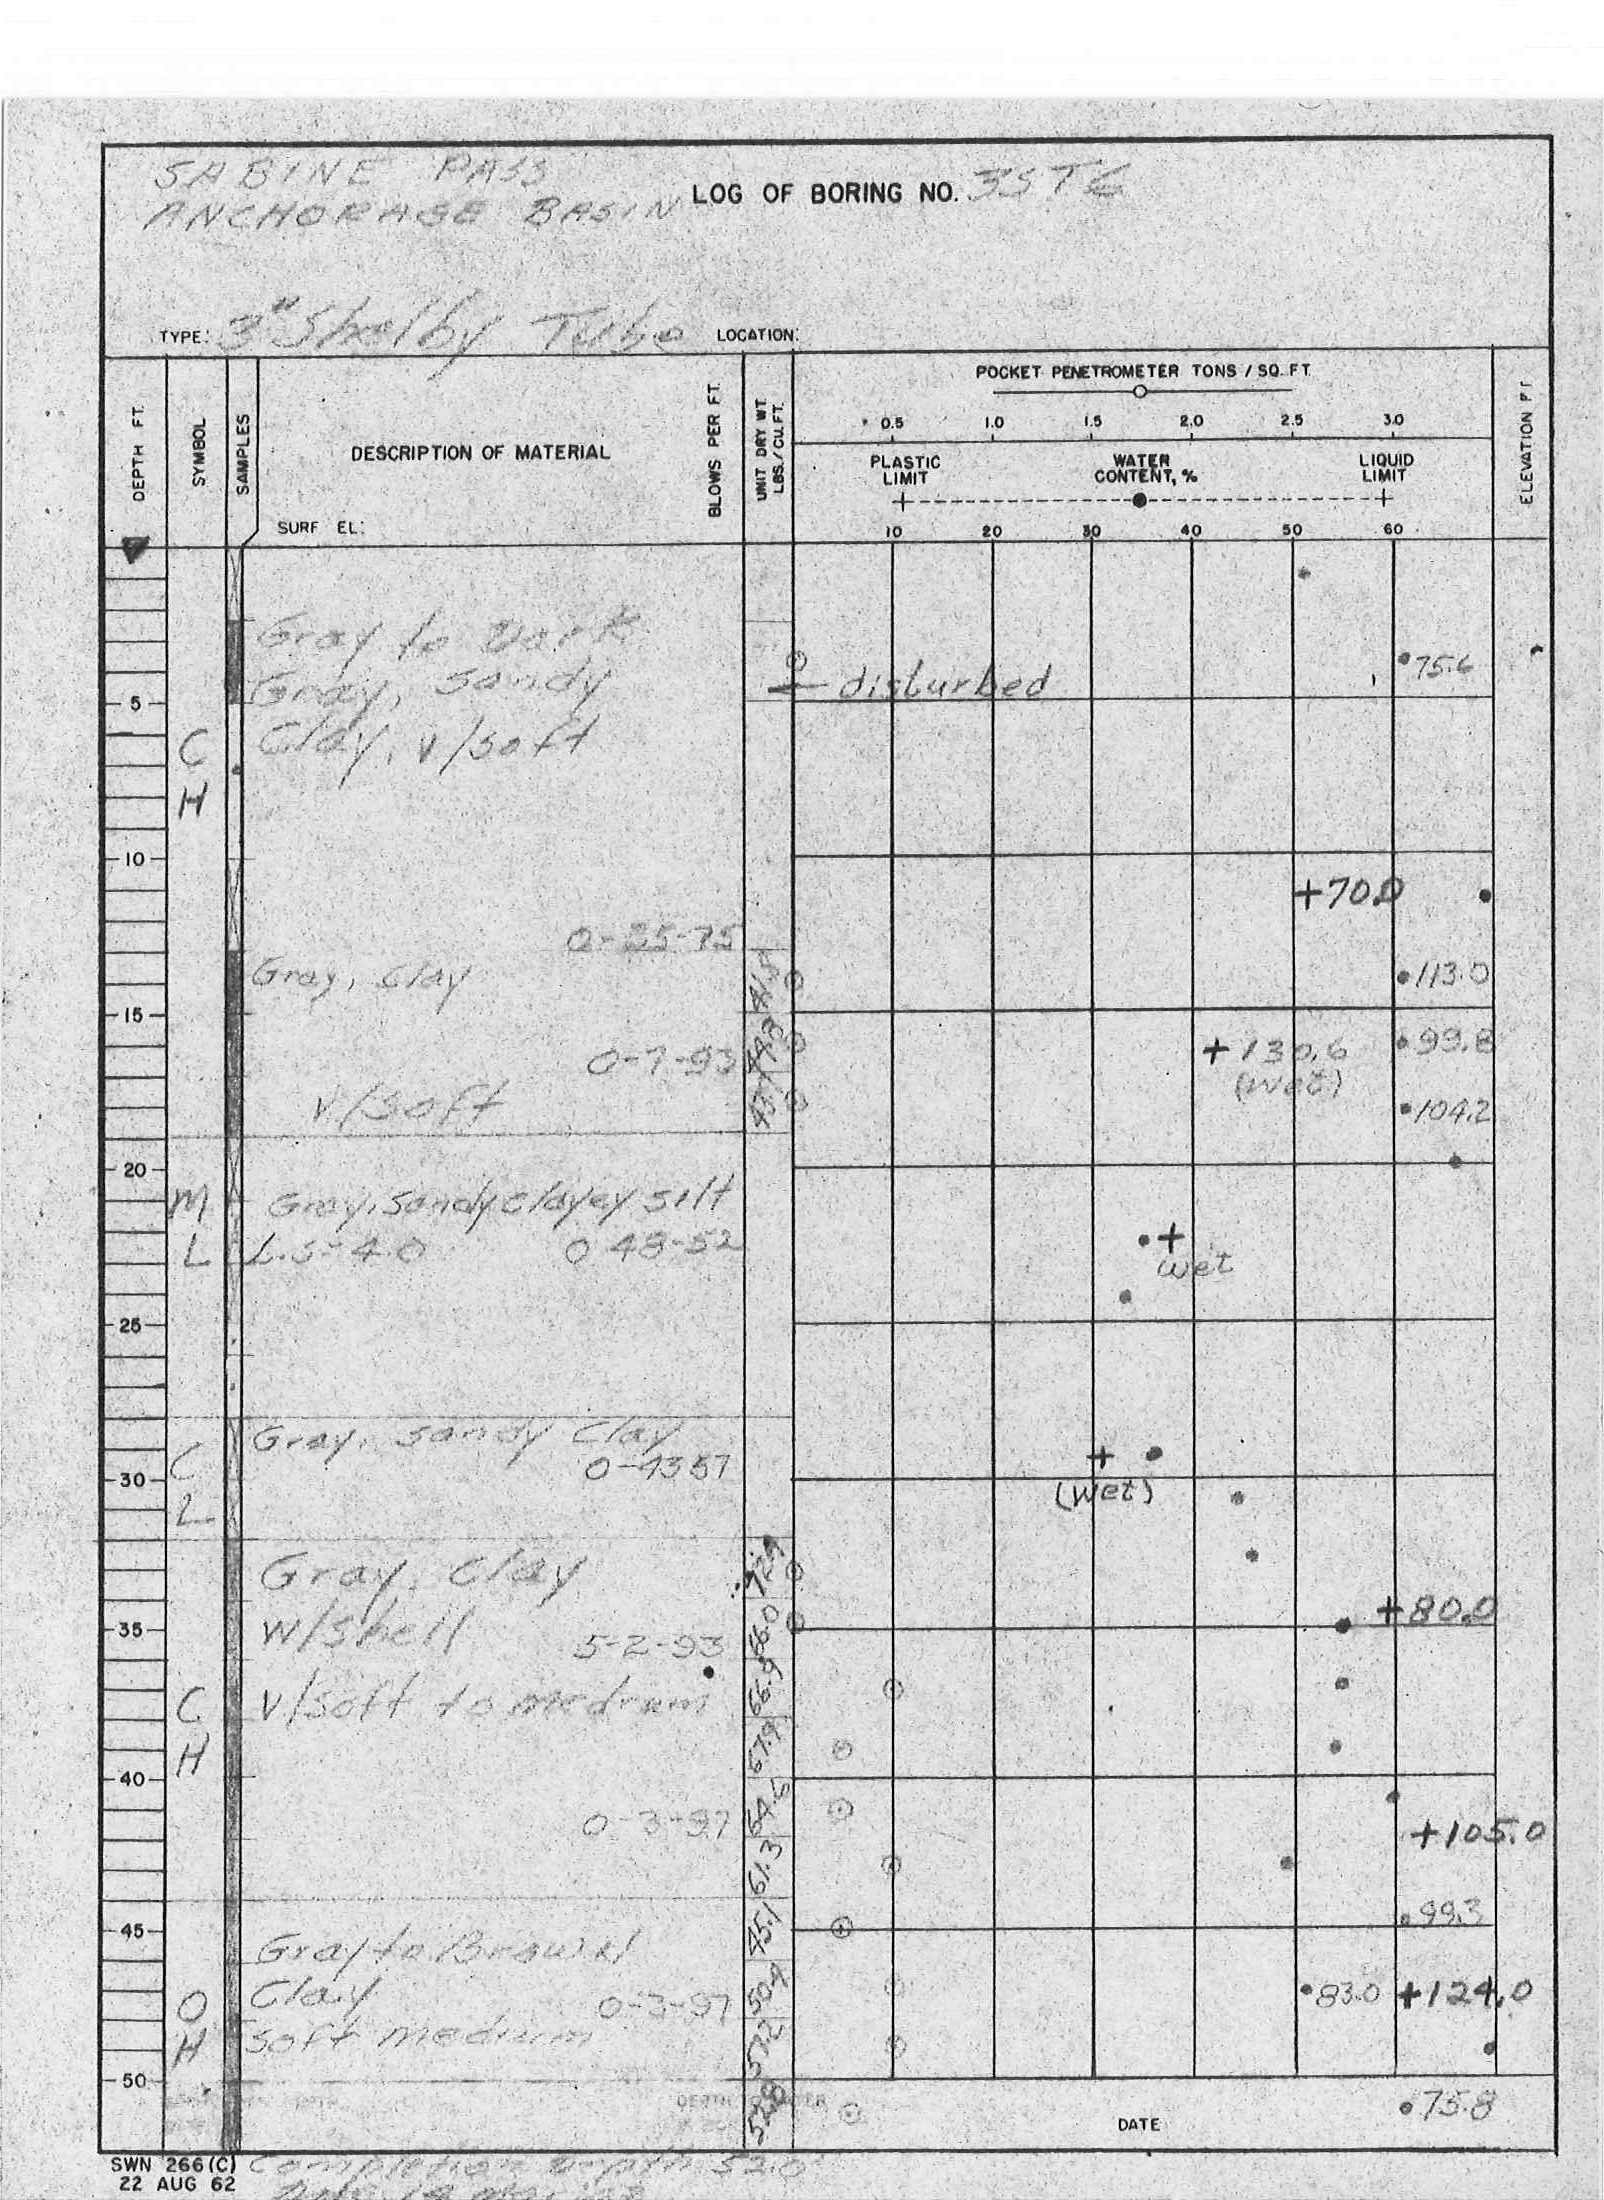 SABINE PASS
ANCHORAGE BASIN
LOG OF BORING NO. 3ST6
TYPE: 3" Shelby Tube LOCATION:
DEPTH FT.
SYMBOL
SAMPLES
DESCRIPTION OF MATERIAL
SURF EL:
BLOWS PER FT.
UNIT DRY WT.
LBS./CU.FT.
POCKET PENETROMETER TONS / SQ. FT.
0.5 1.0 1.5 2.0 2.5 3.0
PLASTIC LIMIT
WATER CONTENT, %
LIQUID LIMIT
10 20 30 40 50 60
ELEVATION FT.
Gray to Dark
75.6
Gray, Sandy
disturbed
5
C
H
Clay, v/soft
10
+70.0
0-25-75
Gray, clay
113.0
15
0-7-93
+130.6
(wet)
99.8
v/soft
104.2
20
M
L
Gray, sandy clayey silt
L.S-4.0 0 48-52
+
wet
25
Gray, sandy Clay
0-4357
C
L
30
+
(wet)
Gray, Clay
72.9
W/Shell
66.0
+80.0
35
5-2-93
66.9
C
H
v/soft to medium
67.9
40
64.5
0-3-97
+105.0
61.3
45.1
99.3
45
Gray to Brown
Clay
0-3-97
50.9
83.0 +124.0
O
H
soft medium
57.2
50
52.8
75.8
DATE
SWN 266(C)
22 AUG 62
Completion Depth 52.0'